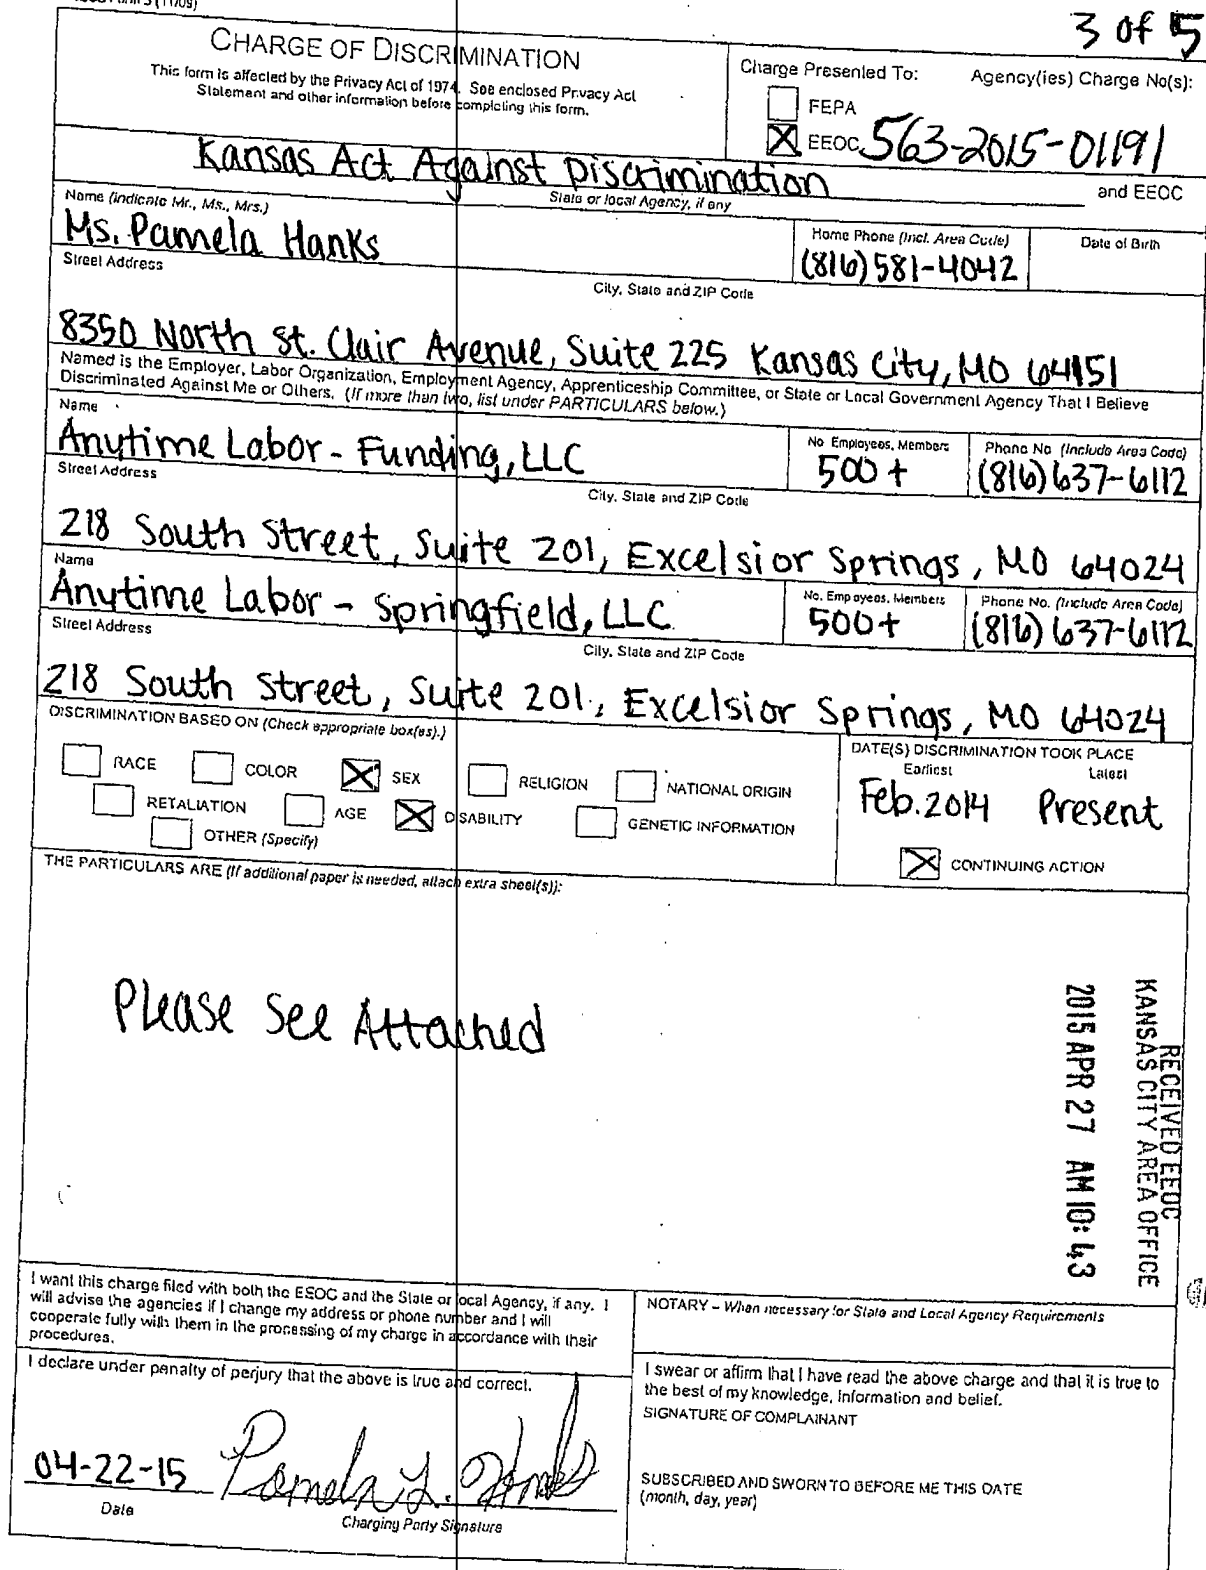 3 of 5
CHARGE OF DISCRIMINATION
This form is affected by the Privacy Act of 1974. See enclosed Privacy Act
Statement and other information before completing this form.
Charge Presented To: Agency(ies) Charge No(s):
FEPA
EEOC 563-2015-01191
Kansas Act Against Discrimination
and EEOC
State or local Agency, if any
Name (indicate Mr., Ms., Mrs.)
Ms. Pamela Hanks
Home Phone (Incl. Area Code)
(816) 581-4042
Date of Birth
Street Address
City, State and ZIP Code
8350 North St. Clair Avenue, Suite 225 Kansas City, MO 64151
Named is the Employer, Labor Organization, Employment Agency, Apprenticeship Committee, or State or Local Government Agency That I Believe
Discriminated Against Me or Others. (If more than two, list under PARTICULARS below.)
Name
Anytime Labor - Funding, LLC
No. Employees, Members
500+
Phone No (Include Area Code)
(816) 637-6112
Street Address
City, State and ZIP Code
218 South Street, Suite 201, Excelsior Springs, MO 64024
Name
Anytime Labor - Springfield, LLC
No. Employees, Members
500+
Phone No. (Include Area Code)
(816) 637-6112
Street Address
City, State and ZIP Code
218 South Street, Suite 201, Excelsior Springs, MO 64024
DISCRIMINATION BASED ON (Check appropriate box(es).)
RACE COLOR SEX RELIGION NATIONAL ORIGIN
RETALIATION AGE DISABILITY GENETIC INFORMATION
OTHER (Specify)
DATE(S) DISCRIMINATION TOOK PLACE
Earliest Latest
Feb. 2014 Present
CONTINUING ACTION
THE PARTICULARS ARE (If additional paper is needed, attach extra sheet(s)):
Please See Attached
RECEIVED EEOC
KANSAS CITY AREA OFFICE
2015 APR 27 AM 10:43
I want this charge filed with both the EEOC and the State or local Agency, if any. I
will advise the agencies if I change my address or phone number and I will
cooperate fully with them in the processing of my charge in accordance with their
procedures.
I declare under penalty of perjury that the above is true and correct.
04-22-15 Pamela L. Hanks
Date
Charging Party Signature
NOTARY – When necessary for State and Local Agency Requirements
I swear or affirm that I have read the above charge and that it is true to
the best of my knowledge, information and belief.
SIGNATURE OF COMPLAINANT
SUBSCRIBED AND SWORN TO BEFORE ME THIS DATE
(month, day, year)